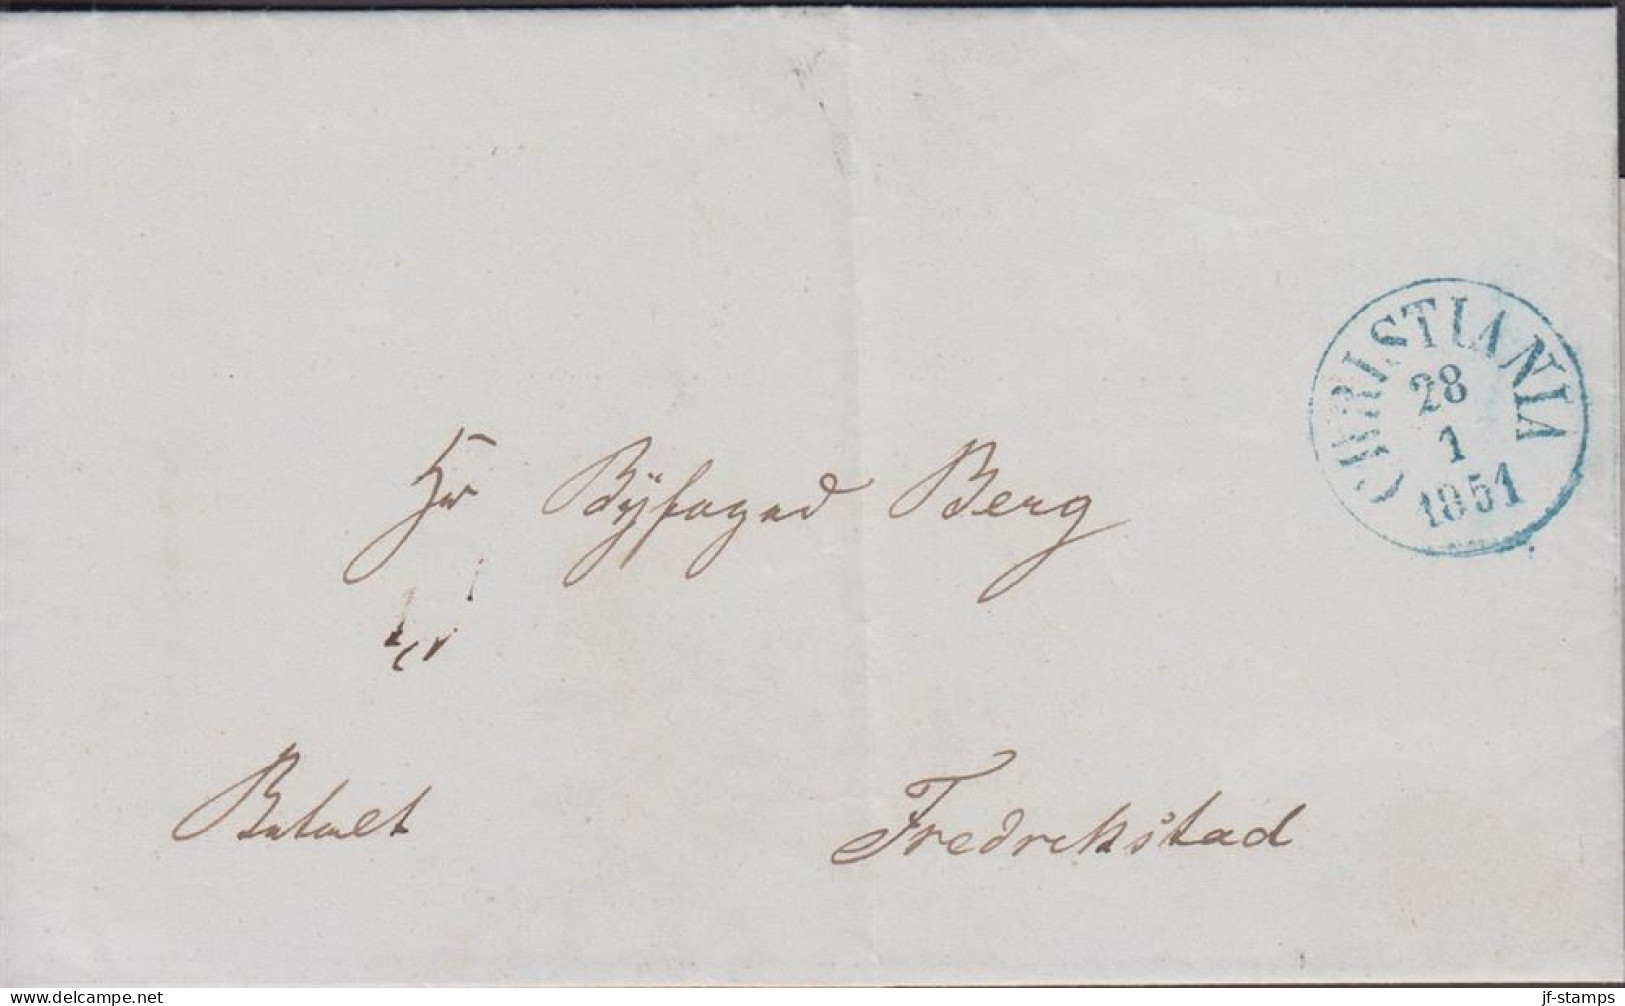 CHRISTIANIA
28
1
1851
Hr Byfoged Berg
Betalt
Fredrikstad
www.delcampe.net
jf-stamps